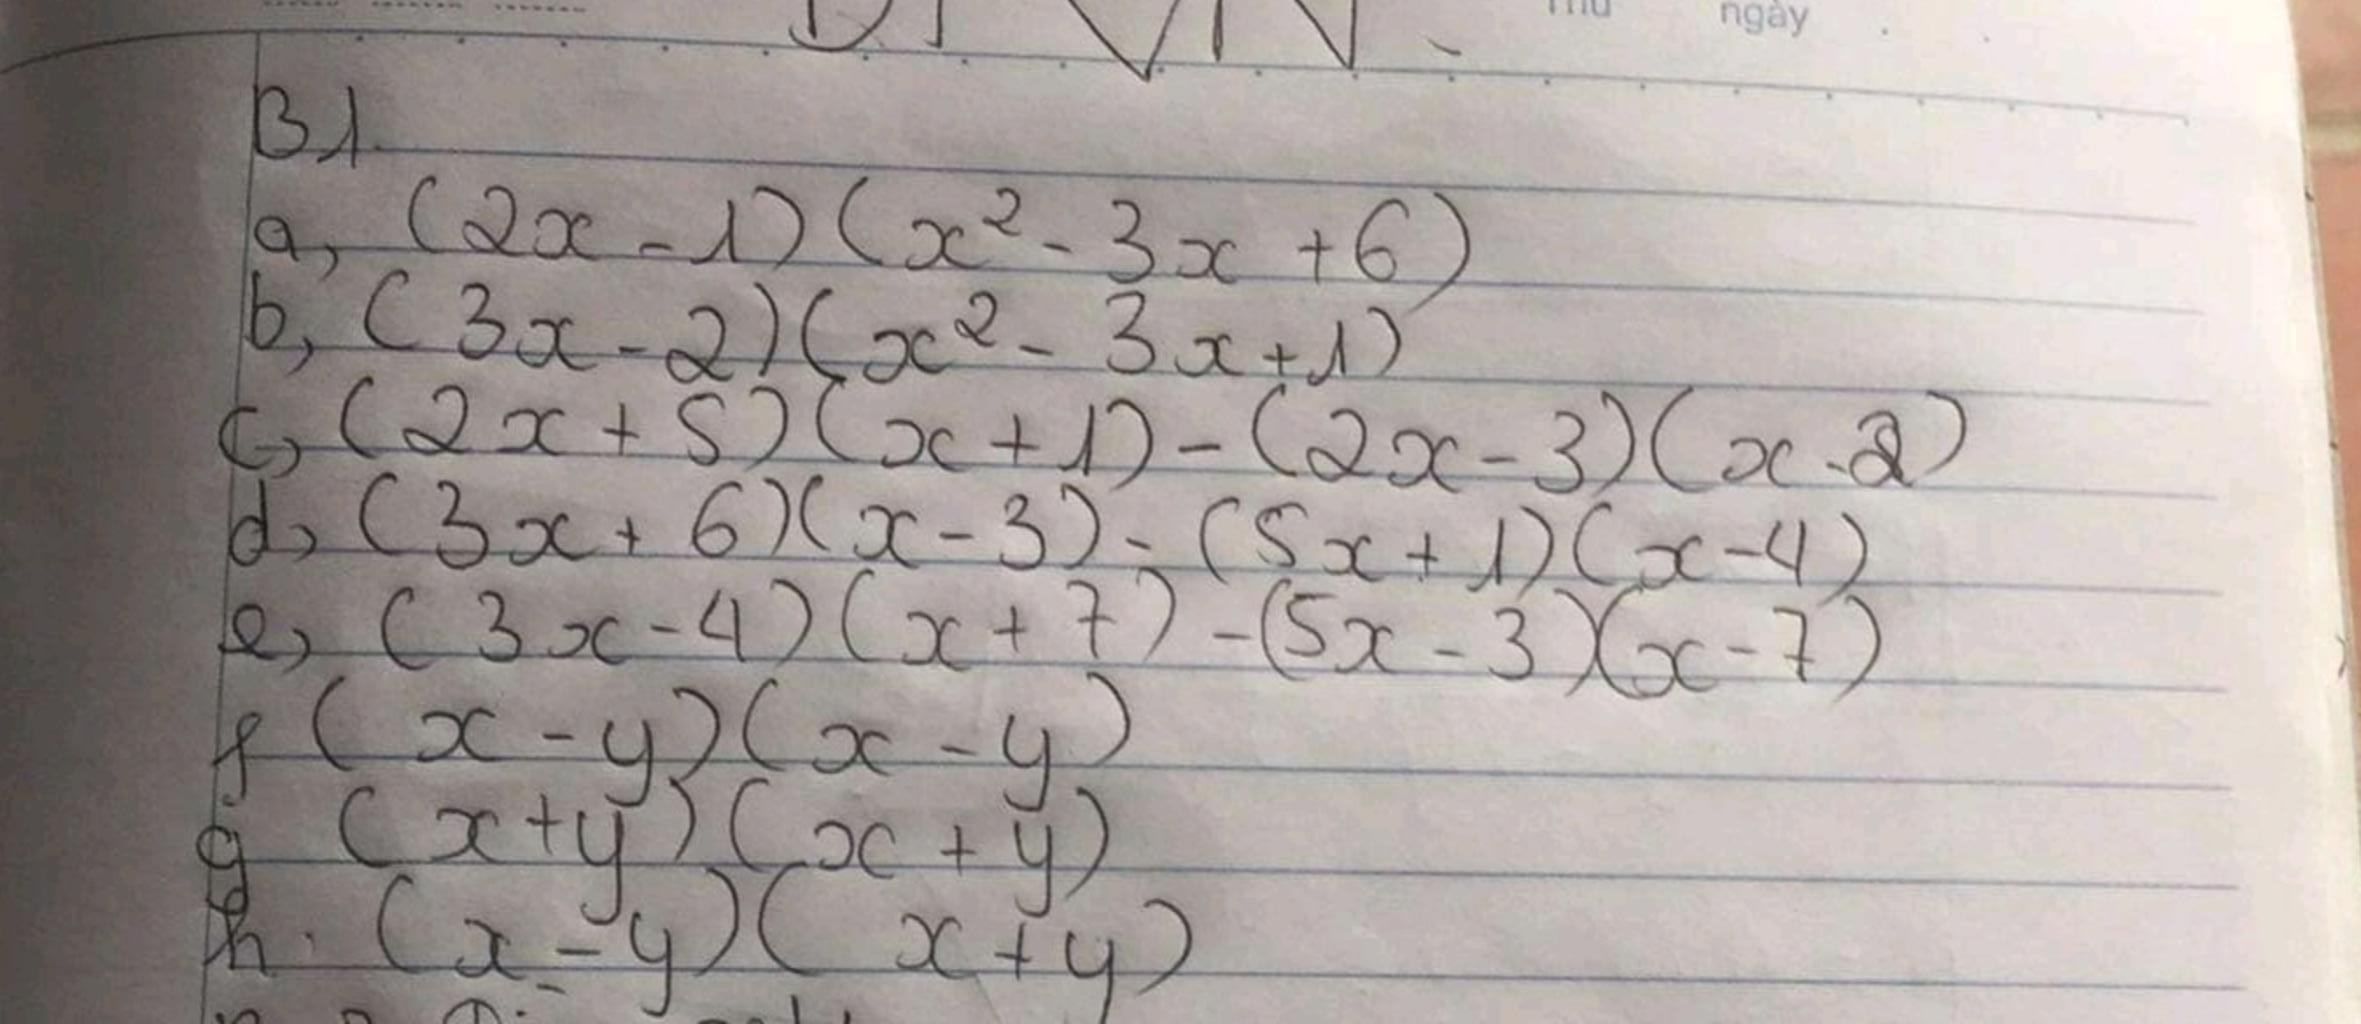 ngày
B1.
a, (2x - 1)(x² - 3x + 6)
b, (3x - 2)(x² - 3x + 1)
c, (2x + 5)(x + 1) - (2x - 3)(x - 2)
d, (3x + 6)(x - 3) - (5x + 1)(x - 4)
e, (3x - 4)(x + 7) - (5x - 3)(x - 7)
f (x - y)(x - y)
g (x + y)(x + y)
h. (x - y)(x + y)